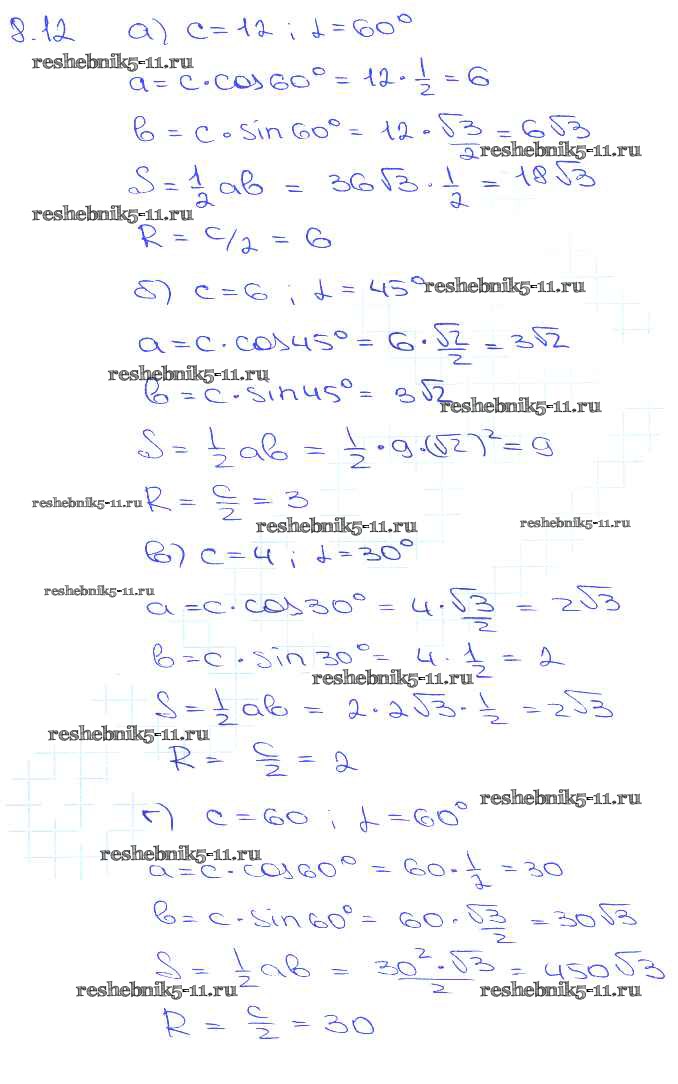 8.12 а) c=12 ; α=60°
reshebnik5-11.ru
a=c·cos60°=12·1/2=6
b=c·sin60°=12·√3/2=6√3
reshebnik5-11.ru
S=1/2ab=36√3·1/2=18√3
reshebnik5-11.ru
R=c/2=6
б) c=6 ; α=45°
reshebnik5-11.ru
a=c·cos45°=6·√2/2=3√2
reshebnik5-11.ru
b=c·sin45°=3√2
reshebnik5-11.ru
S=1/2ab=1/2·9·(√2)²=9
R=c/2=3
reshebnik5-11.ru
reshebnik5-11.ru
reshebnik5-11.ru
в) c=4 ; α=30°
reshebnik5-11.ru
a=c·cos30°=4·√3/2=2√3
b=c·sin30°=4·1/2=2
reshebnik5-11.ru
S=1/2ab=2·2√3·1/2=2√3
reshebnik5-11.ru
R=c/2=2
reshebnik5-11.ru
г) c=60 ; α=60°
reshebnik5-11.ru
a=c·cos60°=60·1/2=30
b=c·sin60°=60·√3/2=30√3
S=1/2ab=30²·√3/2=450√3
reshebnik5-11.ru
reshebnik5-11.ru
R=c/2=30